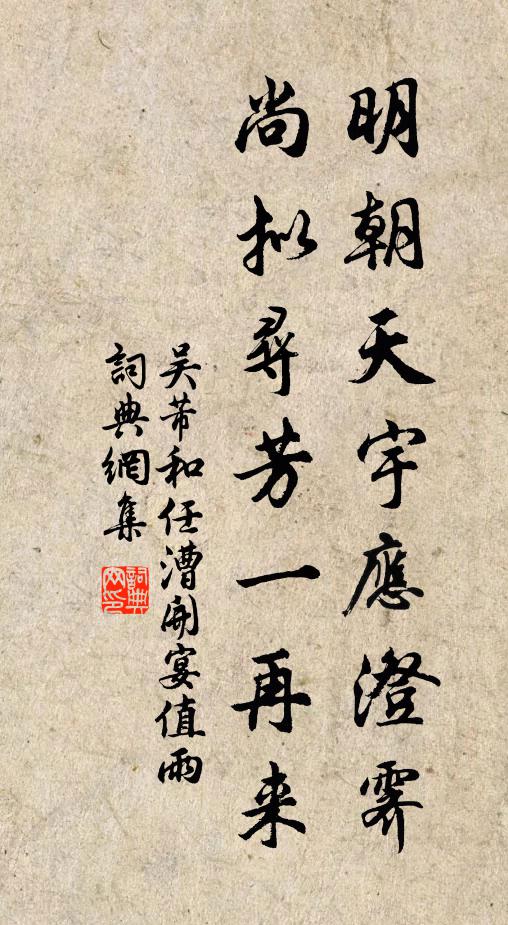 明朝天宇應澄霽
尚拟尋芳一再来
吴芾和任漕開宴值雨
詞典網集
詞典
网印